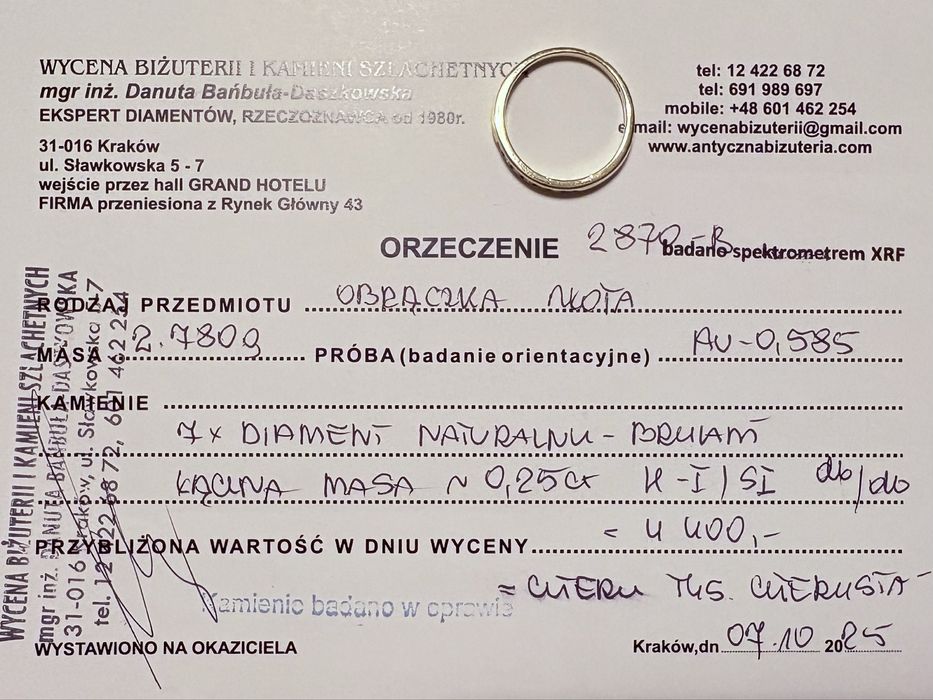 WYCENA BIŻUTERII I KAMIENI SZLACHETNYCH
mgr inż. Danuta Bańbuła-Daszkowska
EKSPERT DIAMENTÓW, RZECZOZNAWCA od 1980r.
31-016 Kraków
ul. Sławkowska 5 - 7
wejście przez hall GRAND HOTELU
FIRMA przeniesiona z Rynek Główny 43
tel: 12 422 68 72
tel: 691 989 697
mobile: +48 601 462 254
e-mail: wycenabizuterii@gmail.com
www.antycznabizuteria.com
ORZECZENIE 2870-B
badano spektrometrem XRF
RODZAJ PRZEDMIOTU OBRĄCZKA ZŁOTA
MASA 2.780g PRÓBA (badanie orientacyjne) AU-0,585
KAMIENIE
7x DIAMENT NATURALNY - BRYLANT
ŁĄCZNA MASA ~ 0,25ct H-I/SI db/db
PRZYBLIŻONA WARTOŚĆ W DNIU WYCENY = 4 400,-
= CZTERY TYS. CZTERYSTA
Kamienie badano w oprawie
WYSTAWIONO NA OKAZICIELA
Kraków,dn 07.10 2025
WYCENA BIŻUTERII I KAMIENI SZLACHETNYCH
mgr inż. DANUTA BAŃBUŁA-DASZKOWSKA
31-016 Kraków, ul. Sławkowska 5-7
tel. 12 422 68 72, 601 462 254